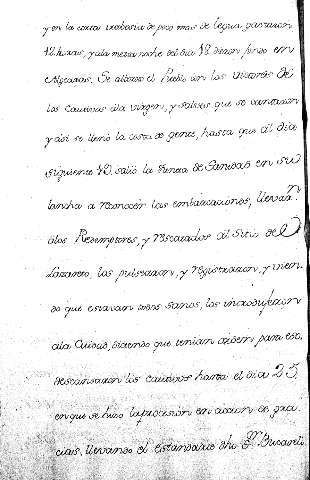 y en la corta travesia de poco mas de legua gastaron
12 horas, y ala media noche del dia 18 dieron fondo en
Algeciras. Se alboroto el Pueblo con los vitores de
los cautivos ala virgen, y salves que se cantaron
y asi se lleno la costa de gente, hasta que al dia
siguiente 19. salio la Junta de Sanidad en su
lancha a reconocer las embarcaciones, llevaron
alos Redemptores, y rescatados al sitio del
Lazareto, los pulsaron, y registraron, y vien-
do que estavan todos sanos, los introdujeron
ala Ciudad, diciendo que tenian orden para esto.
Descansaron los cautivos hasta el dia 25,
en que se hizo la procesion en accion de gra-
cias, llevando el Estandarte dho Pe. Bucareli